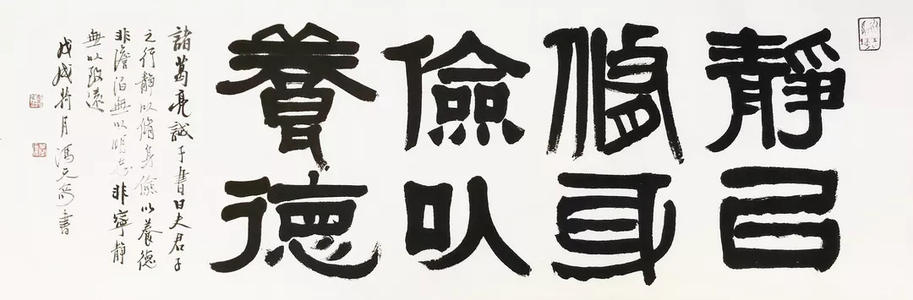 靜㠯
脩身
儉以
養德
諸葛亮誡子書曰夫君子
之行靜以脩身儉以養德
非澹泊無以明志非寧靜
無以致遠
戊戌荷月 馮 書